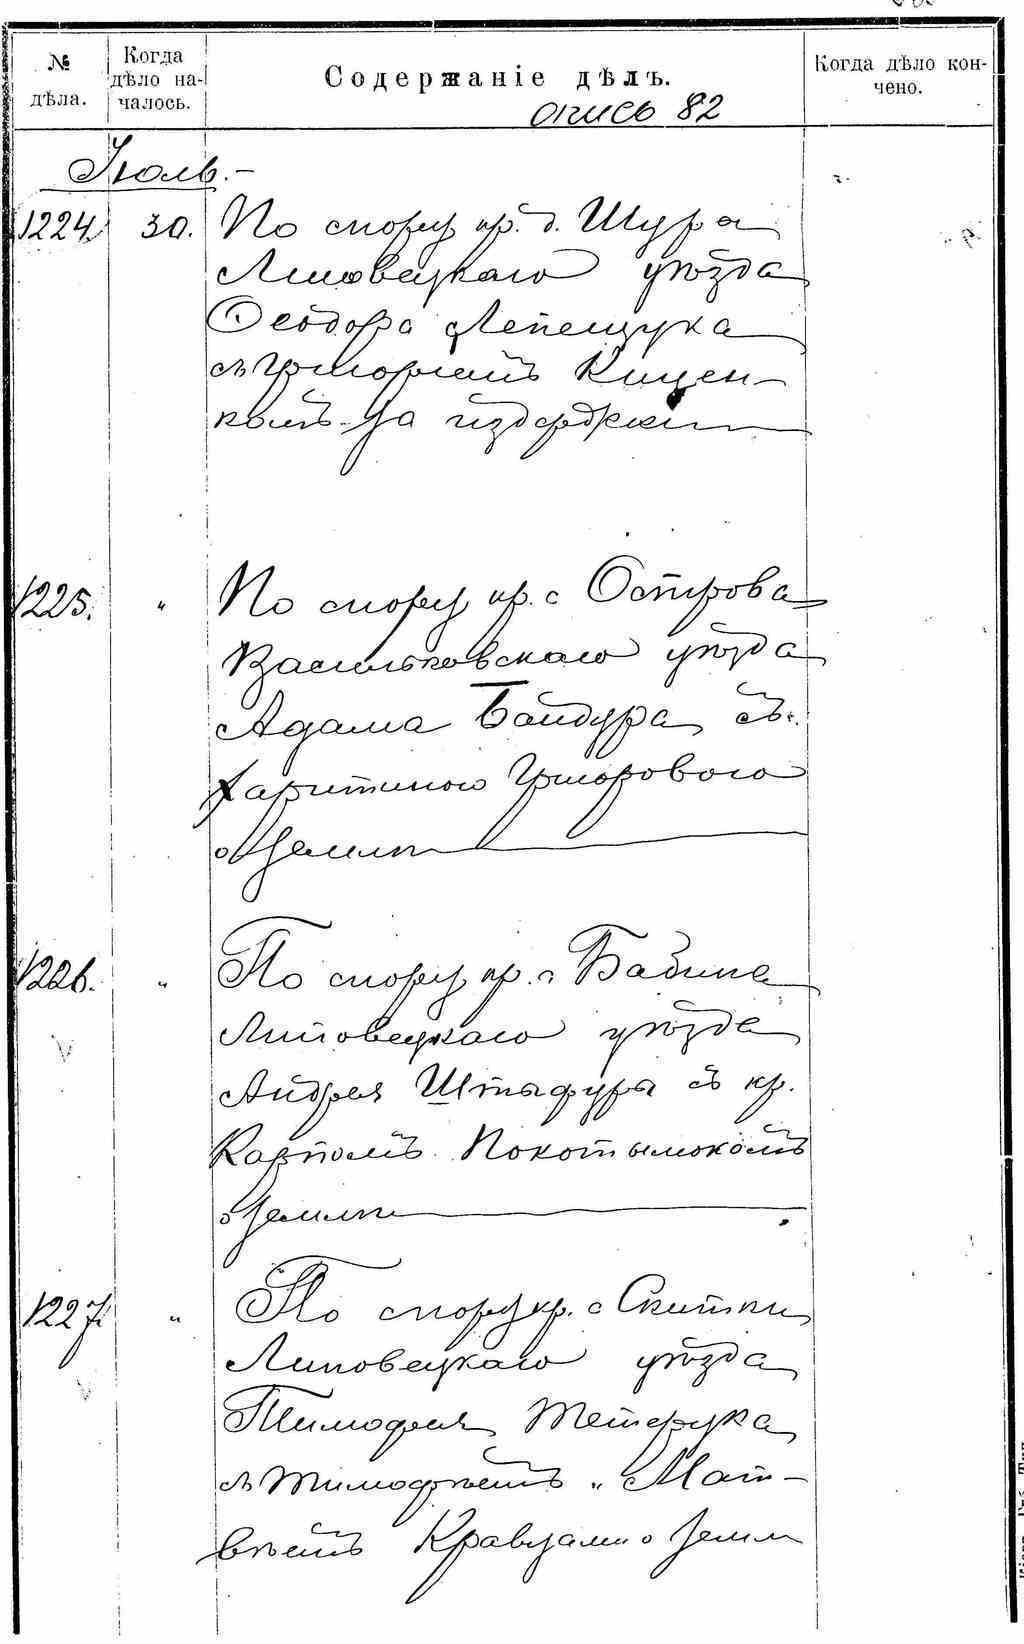 № дѣла.
Когда дѣло на-
чалось.
Содержаніе дѣлъ.
Когда дѣло кон-
чено.
опись 82
Іюль.-
1224 30. По спору кр. д. Шура
Липовецкаго уѣзда
Ѳеодора Лепещука
съ Григоріемъ Кицен-
комъ за издержки
1225. " По спору кр. с Острова
Васильковскаго уѣзда
Адама Байдура съ
Харитиною Григоровою
о землѣ
1226. " По спору кр. с Бабина
Липовецкаго уѣзда
Андрея Штыфуры съ кр.
Карпомъ Покотылокомъ
о землѣ
1227. " По спору кр. с Скитки
Липовецкаго уѣзда
Тимофея Тетерука
съ Тимофѣемъ и Мат-
вѣемъ Кравцами о земл